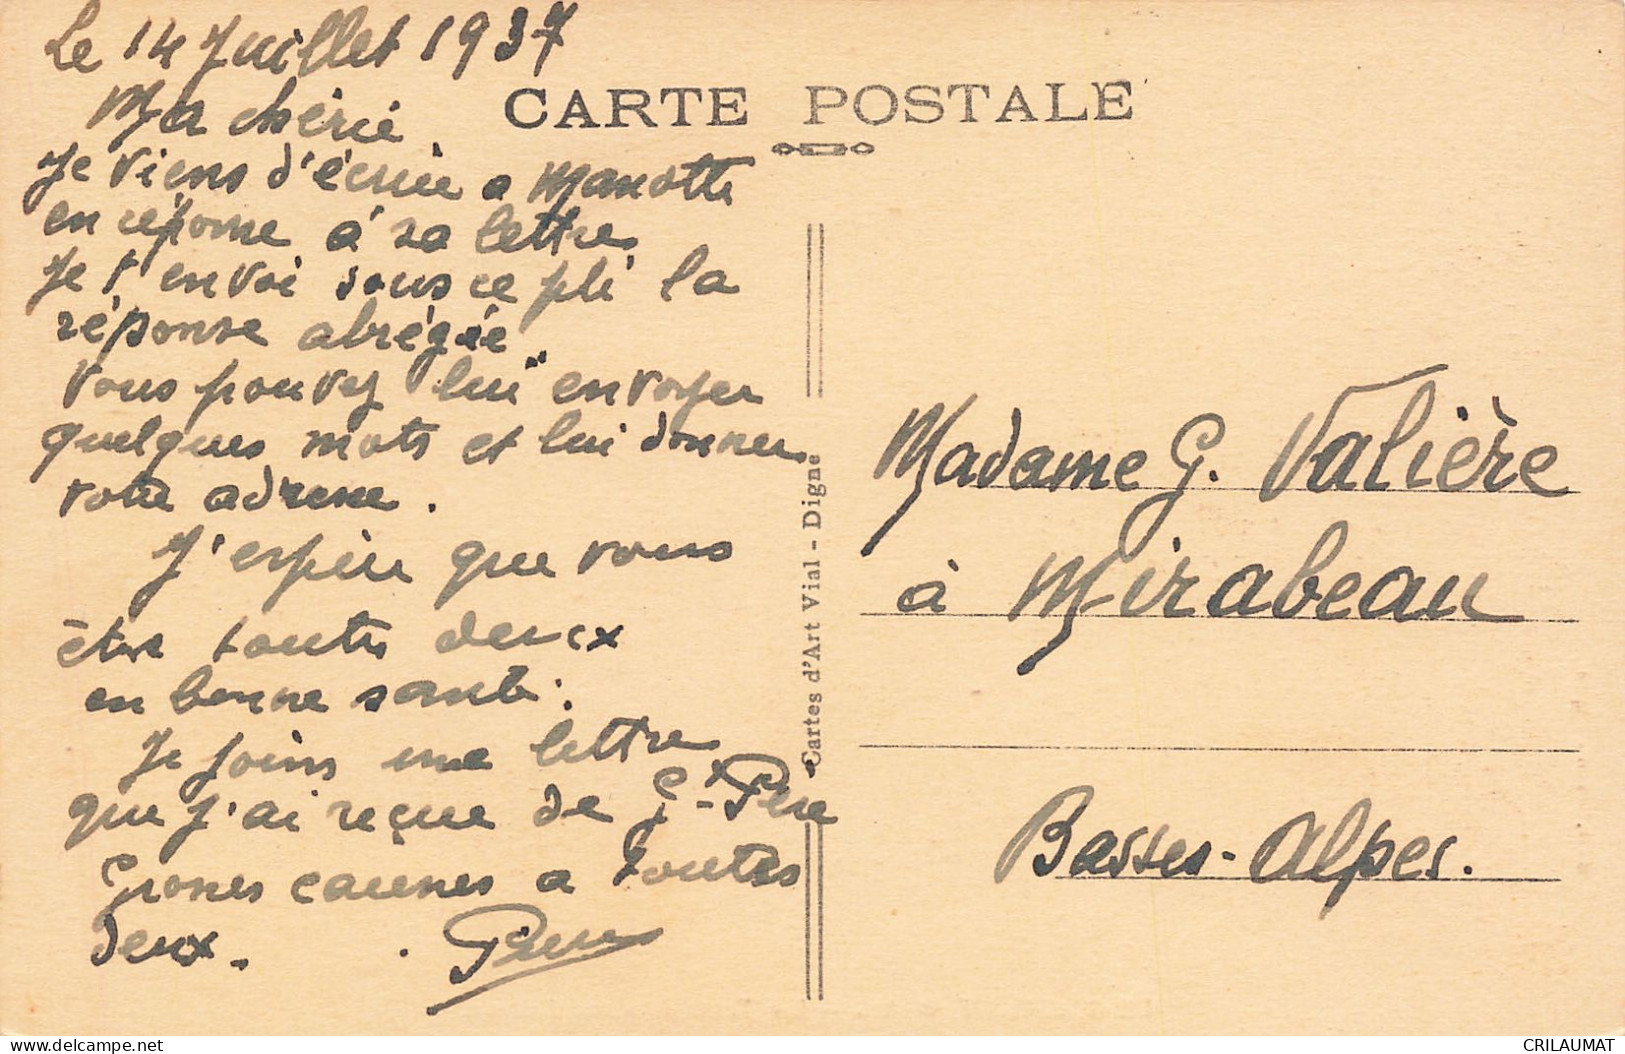 Le 14 Juillet 1937
Ma chérie
Je viens d'écrire a Manotte
en réponse à sa lettre
Je t'envoi sous ce pli la
réponse abrégée.
Vous pouvez lui envoyer
quelques mots et lui donner
votre adresse.
J'espère que vous
êtes toutes deux
en bonne santé.
Je joins une lettre
que j'ai reçue de G-Père
Grosses caresses a toutes
deux.
CARTE POSTALE
Cartes d'Art Vial - Digne
Madame G. Valière
à Mirabeau
Basses-Alpes.
delcampe.net
CRILAUMAT